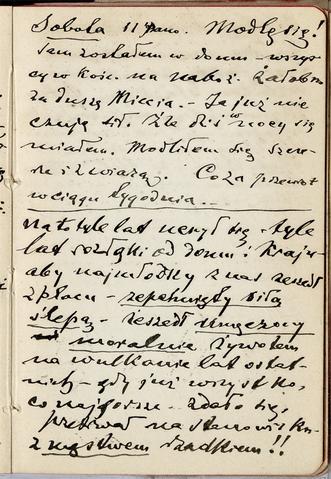 Sobota 11 rano. Modlę się!
Sam zostałem w domu - wszys-
cy w Kość. na naboż. żałobn.
za duszę Miecia. - Ja już nie
czuję sił. Źle dziś w nocy się
miałem. Modliłem się szcze-
rze i Co za przewrót
w ciągu tygodnia. -
na to tyle lat uczył się - tyle
lat rozłąki od domu i kraju -
aby najmłodszy z nas zszedł
z placu - zepchnięty siłą
ślepą - zszedł umęczony
moralnie żywotem
na wulkanie lat ostat-
nich - gdy już wszystko,
co najgorsze - zdało się,
przetrwał na stanowisku
z męstwem rzadkiem!!